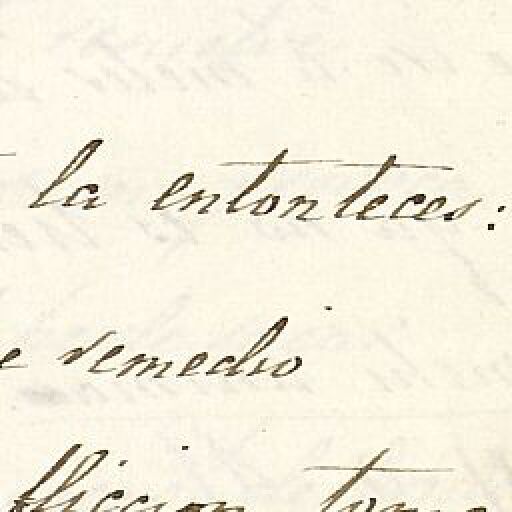 la entonteces:
e remedio
fliccion toma